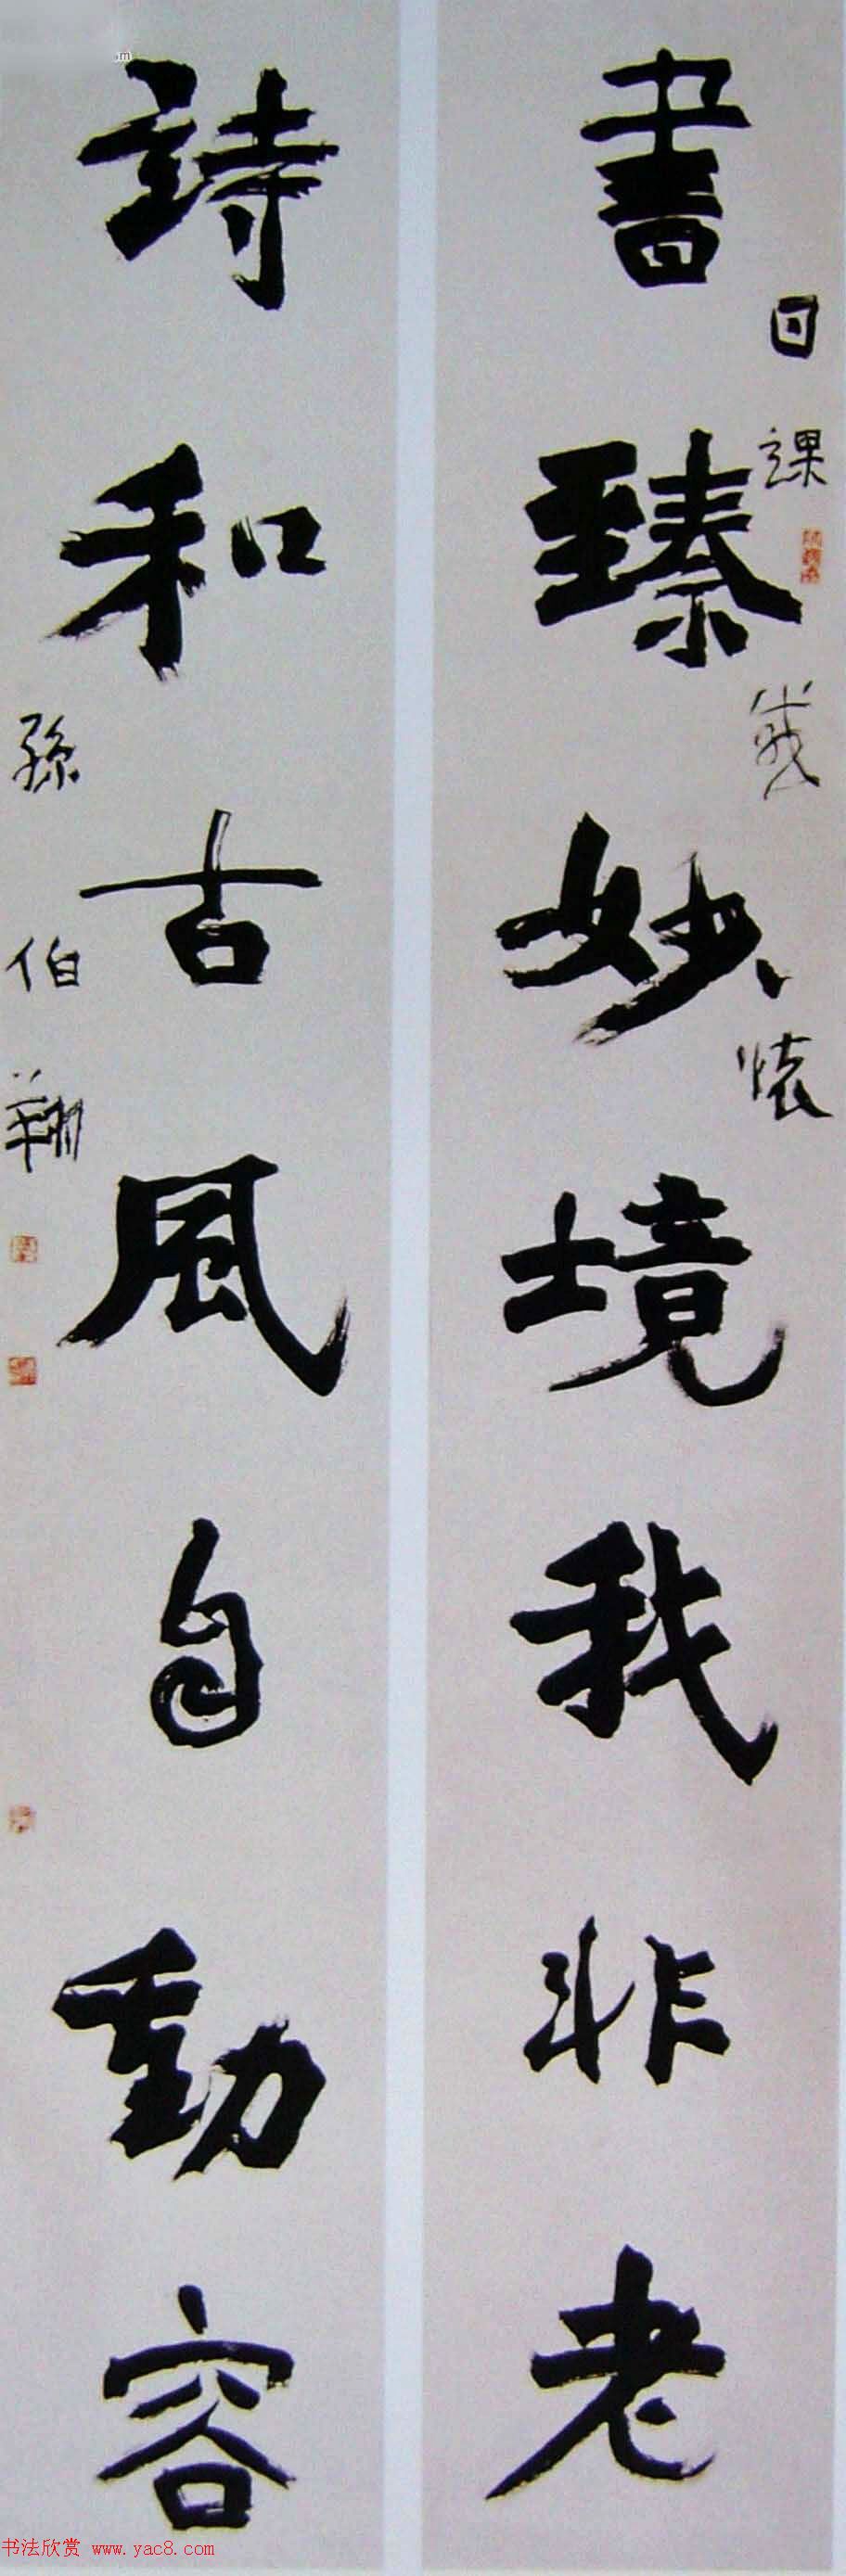 書臻妙境我非老
日課
詩和古風自動容
孫伯翔
书法欣赏 www.yac8.com